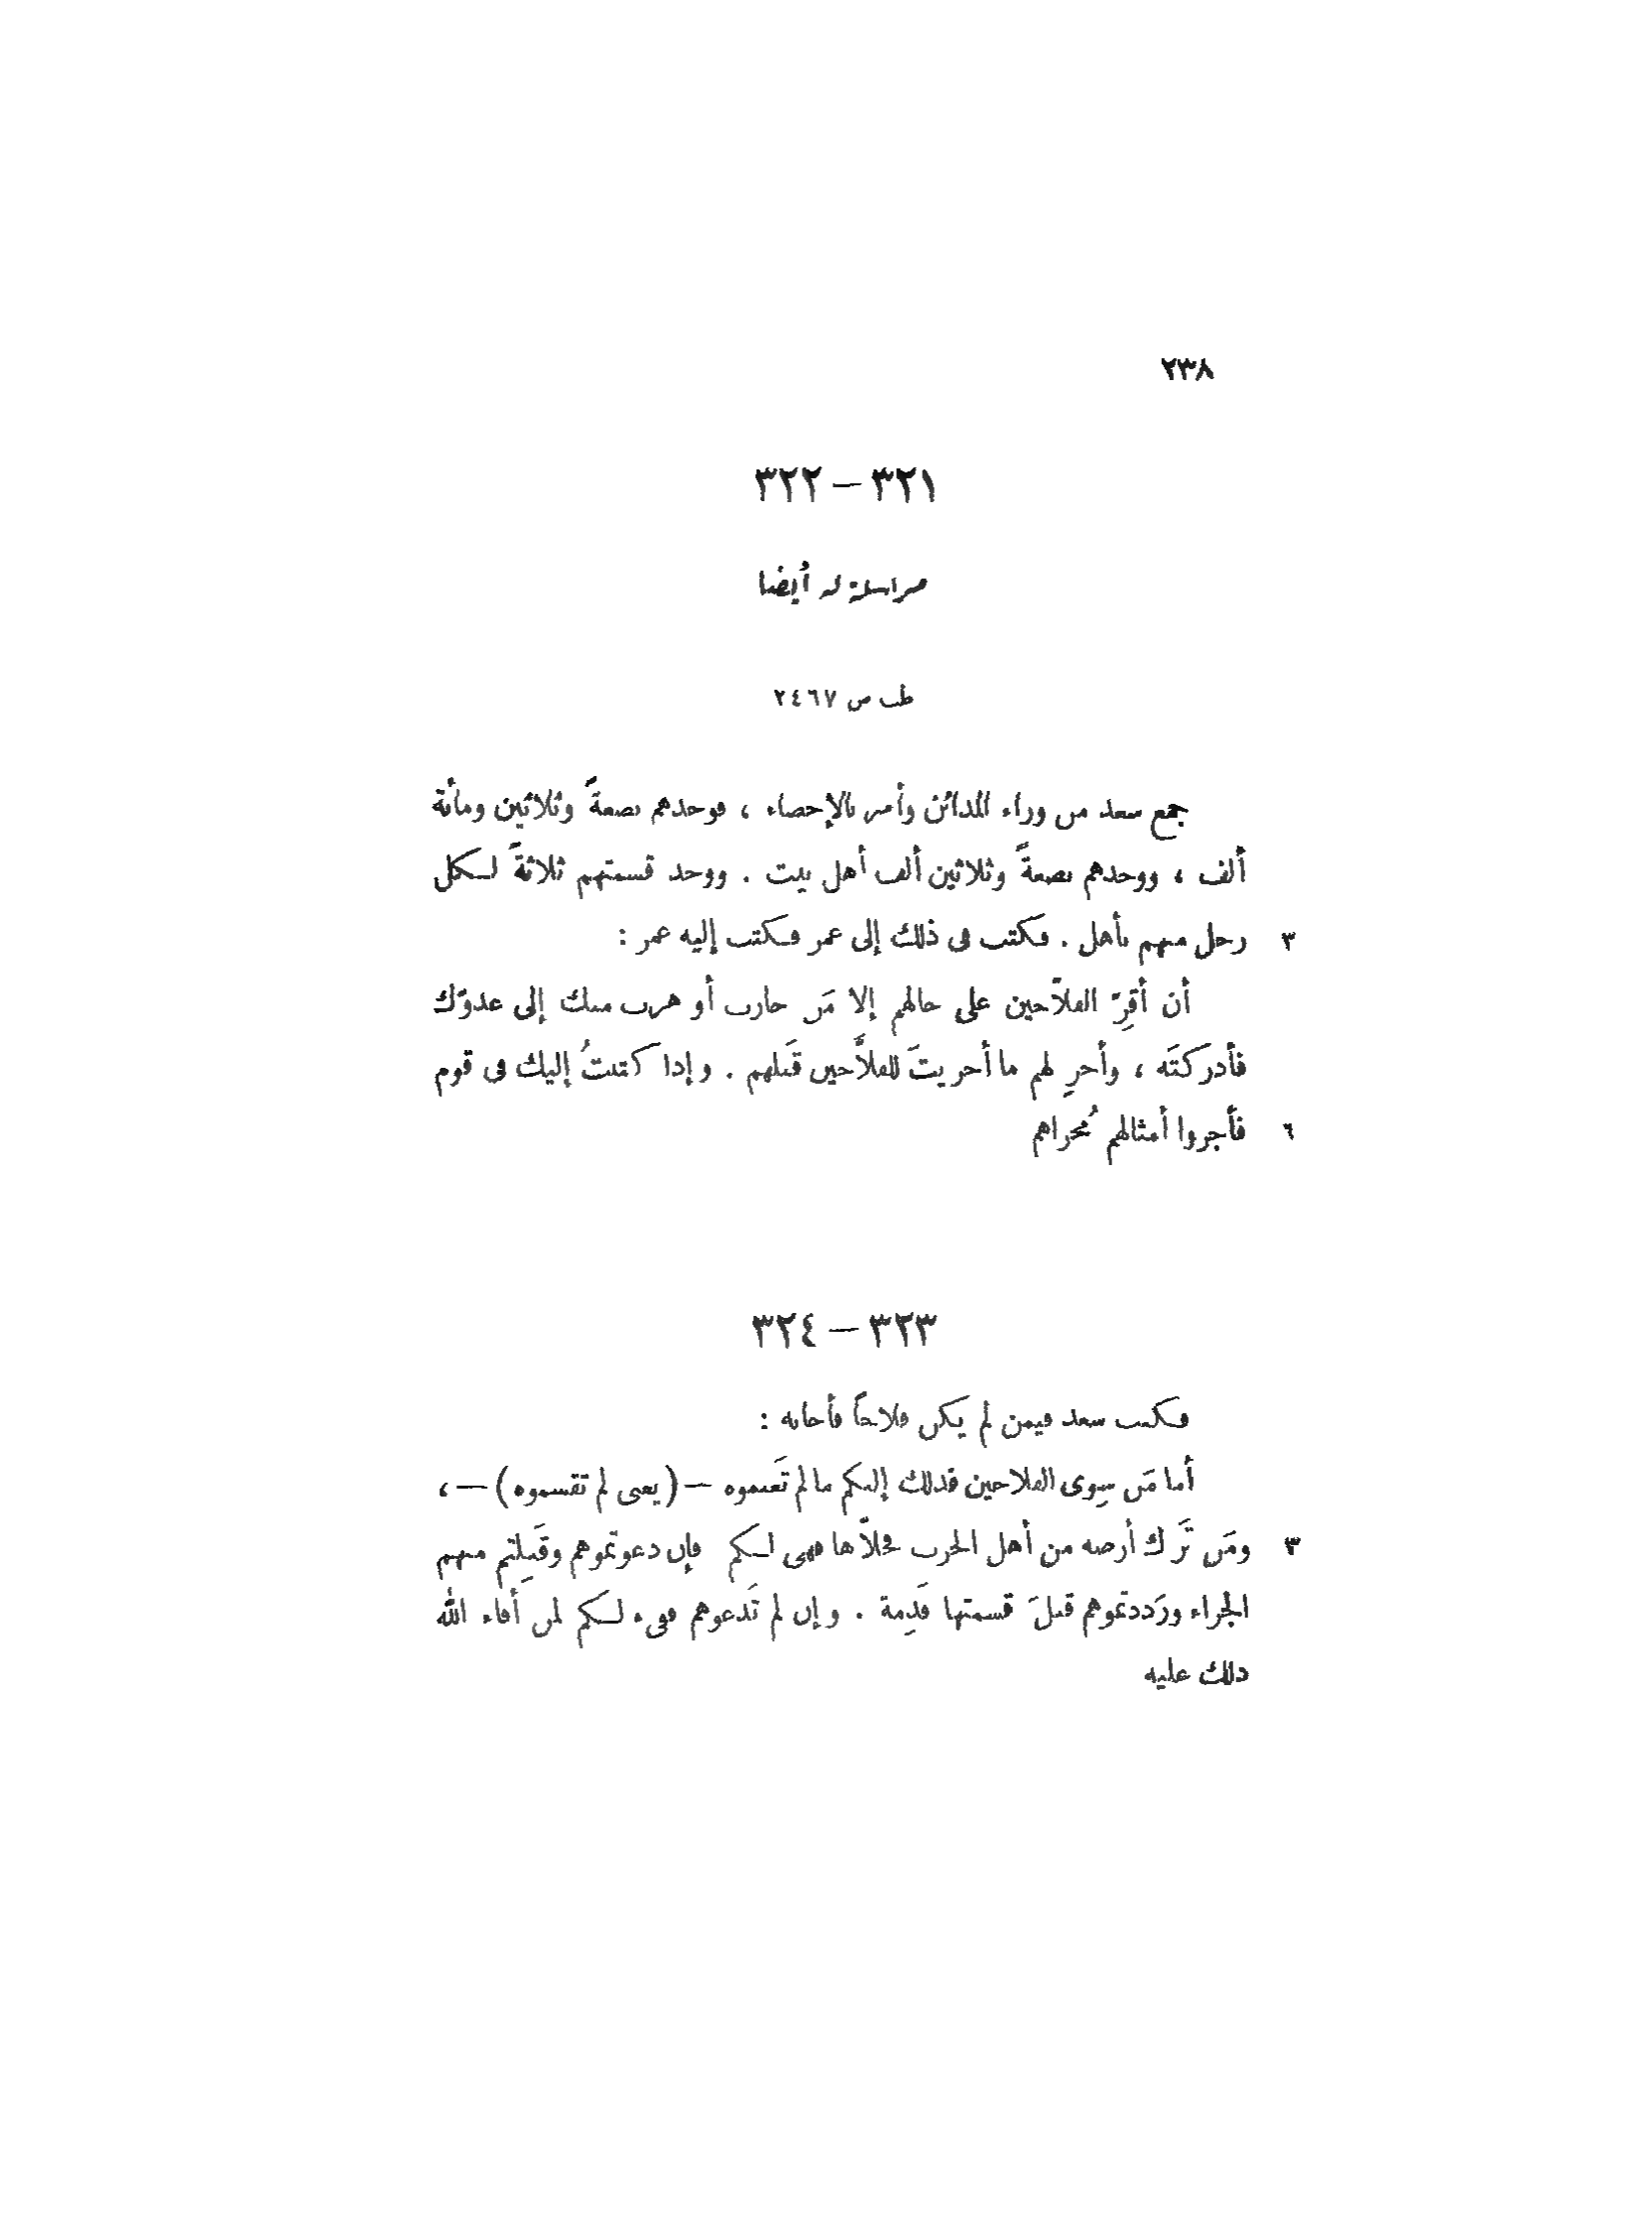 ٢٣٨
٣٢١ – ٣٢٢
مراسلة له أيضا
طب ص ٢٤٦٧
جمع سعد من وراء المدائن وأمر بالإحصاء ، فوجدهم بضعةً وثلاثين ومائة
ألف ، ووجدهم بضعةً وثلاثين ألف أهل بيت . ووجد قسمتهم ثلاثةً لكل
٣ رجل منهم بأهل . فكتب في ذلك إلى عمر فكتب إليه عمر :
أن أقِرّ الفلاّحين على حالهم إلا مَن حارب أو هرب منك إلى عدوّك
فأدركتَه ، وأجرِ لهم ما أجريتَ للفلاَّحين قَبلهم . وإذا كتبتُ إليك في قوم
٦ فأجروا أمثالهم مُجراهم
٣٢٣ – ٣٢٤
فكتب سعد فيمن لم يكن فلاحاً فأجابه :
أما مَن سِوى الفلاحين فذلك إليكم ما لم تَغنموه – (يعني لم تقسموه) – ،
٣ ومَن تَرك أرضه من أهل الحرب فخلاّها فهي لكم فإن دعوتموهم وقَبِلتم منهم
الجزاء ورَددتموهم قبلَ قسمتها فَذِمة . وإن لم تَدعوهم ففيء لكم لمن أفاء الله
ذلك عليه